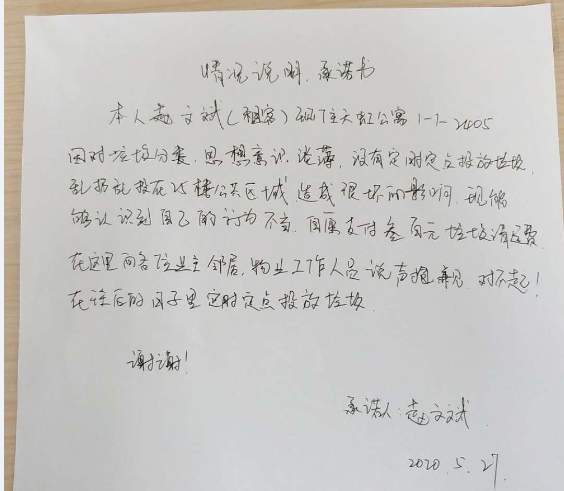 情况说明.承诺书
本人赵文斌(租客)现下住天虹公寓1-1-2005
因对垃圾分类.思想意识.淡薄,没有定时定点投放垃圾,
乱扔乱投在25楼公共区域,造成很坏的影响.现能
够认识到自己的行为不当.自愿支付叁百元垃圾清运费.
在这里向各位业主邻居,物业工作人员说声抱歉.对不起!
在往后的日子里定时定点投放垃圾.
谢谢!
承诺人:赵文斌
2020.5.27.